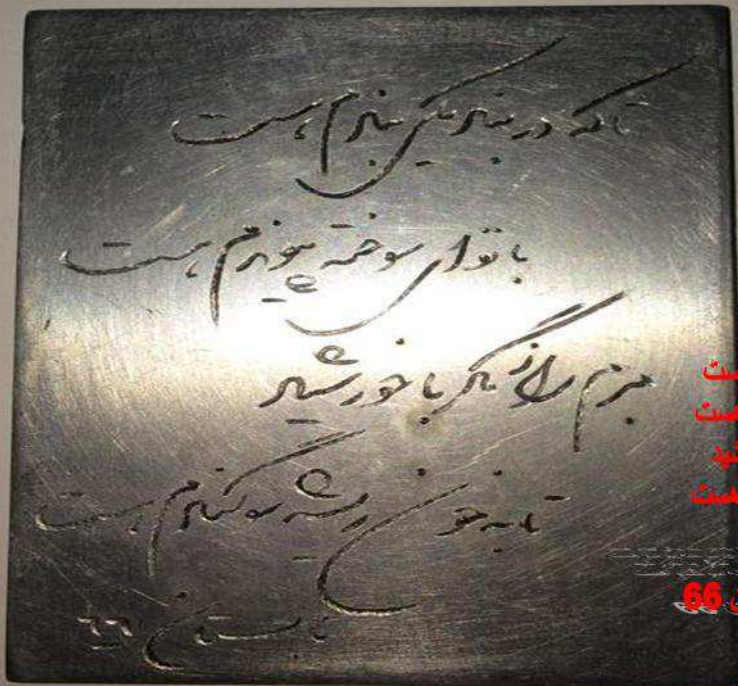 تا که در بند یکی بندم هست
با تو ای سوخته پیوندم هست
با خورشید
تا به خون ریشه سوگندم هست
تابستان ۶۶
هست
هست
66